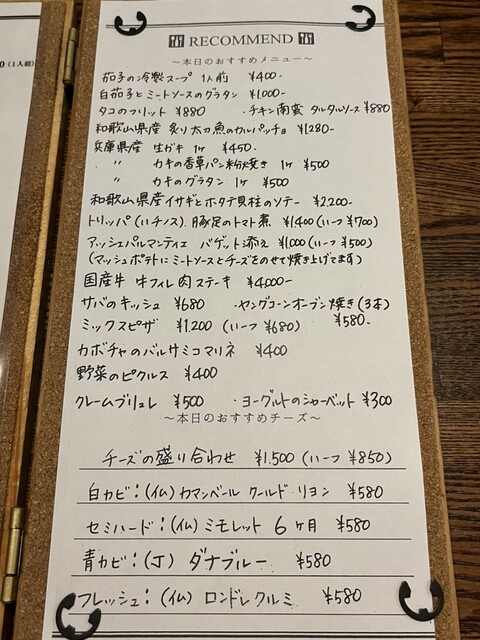 0(1人前)
RECOMMEND
～本日のおすすめメニュー～
茄子の冷製スープ 1人前 ¥400-
白茄子とミートソースのグラタン ¥1,000-
タコのフリット ¥880 ・チキン南蛮 タルタルソース ¥880
和歌山県産 炙り太刀魚のカルパッチョ ¥1,280-
兵庫県産 生ガキ 1ヶ ¥450-
〃 カキの香草パン粉焼き 1ヶ ¥500
〃 カキのグラタン 1ヶ ¥500
和歌山県産イサギとホタテ貝柱のソテー ¥2,200-
トリッパ(ハチノス)、豚足のトマト煮 ¥1,400(ハーフ ¥700)
アッシェパルマンティエ バゲット添え ¥1,000(ハーフ ¥500)
(マッシュポテトにミートソースとチーズをのせて焼き上げてます)
国産牛 牛フィレ肉ステーキ ¥4,000-
サバのキッシュ ¥680 ・ヤングコーンオーブン焼き(3本)
ミックスピザ ¥1,200 (ハーフ ¥680) ¥580-
カボチャのバルサミコマリネ ¥400
野菜のピクルス ¥400
クレームブリュレ ¥500 ・ヨーグルトのシャーベット ¥300
～本日のおすすめチーズ～
チーズの盛り合わせ ¥1,500(ハーフ ¥850)
白カビ:(仏)カマンベール クールド リヨン ¥580
セミハード:(仏)ミモレット 6ヶ月 ¥580
青カビ:(丁)ダナブルー ¥580
フレッシュ:(仏)ロンドレクルミ ¥580